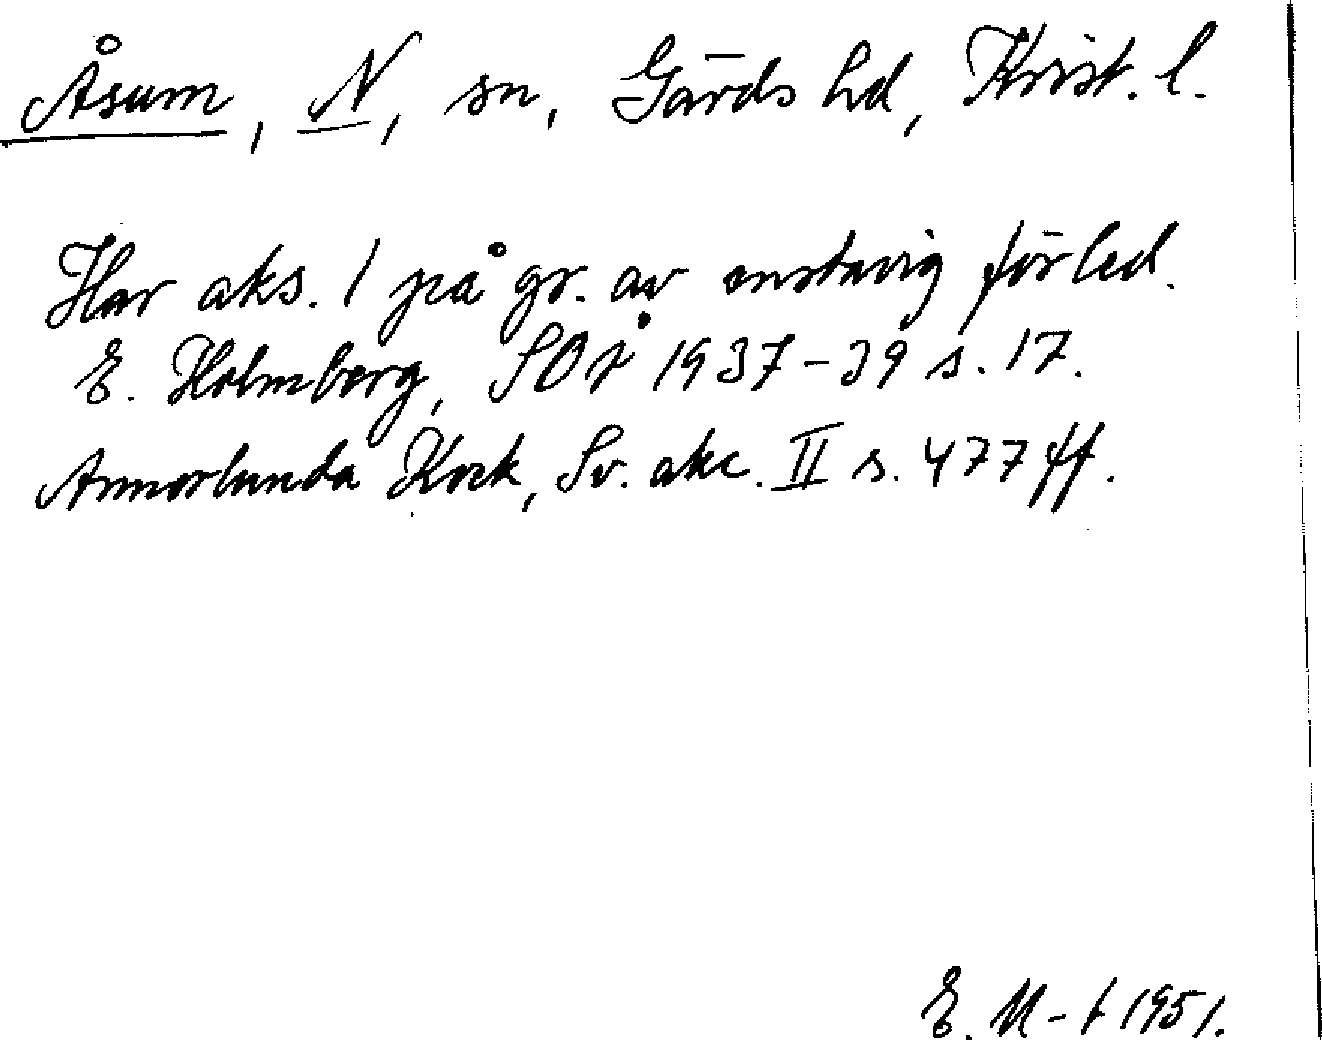 Åsum, N, sn, Gärds hd, Krist. l.
Har aks. 1 på gr. av enstavig förled.
E. Holmberg, SOÅ 1937-39 s. 17.
Annorlunda Kock, Sv. akc. II s. 477 ff.
E. M-t 1951.